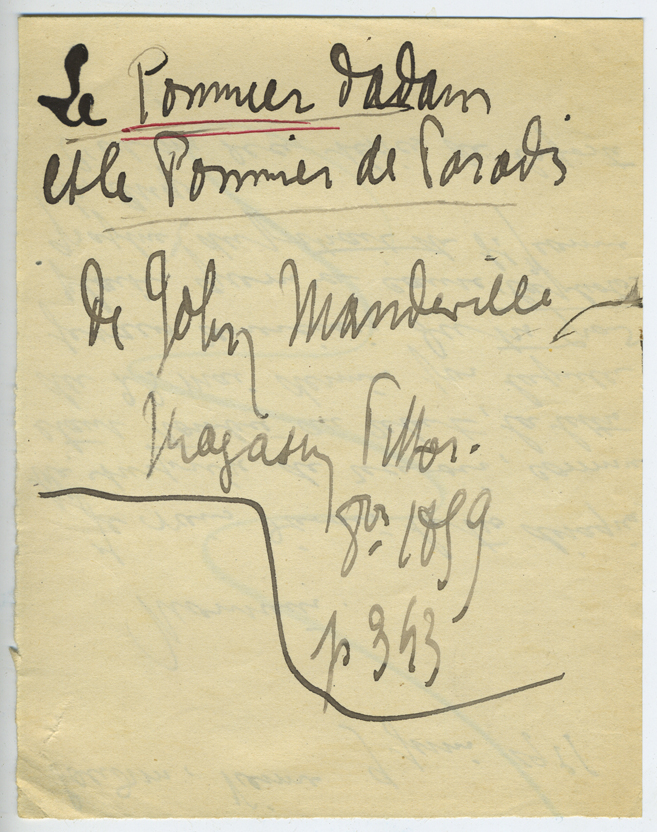 Le Pommier d'adam
et le Pommier de Paradis
de John Mandeville
Magasin Pittor.
8bre 1859
p 343